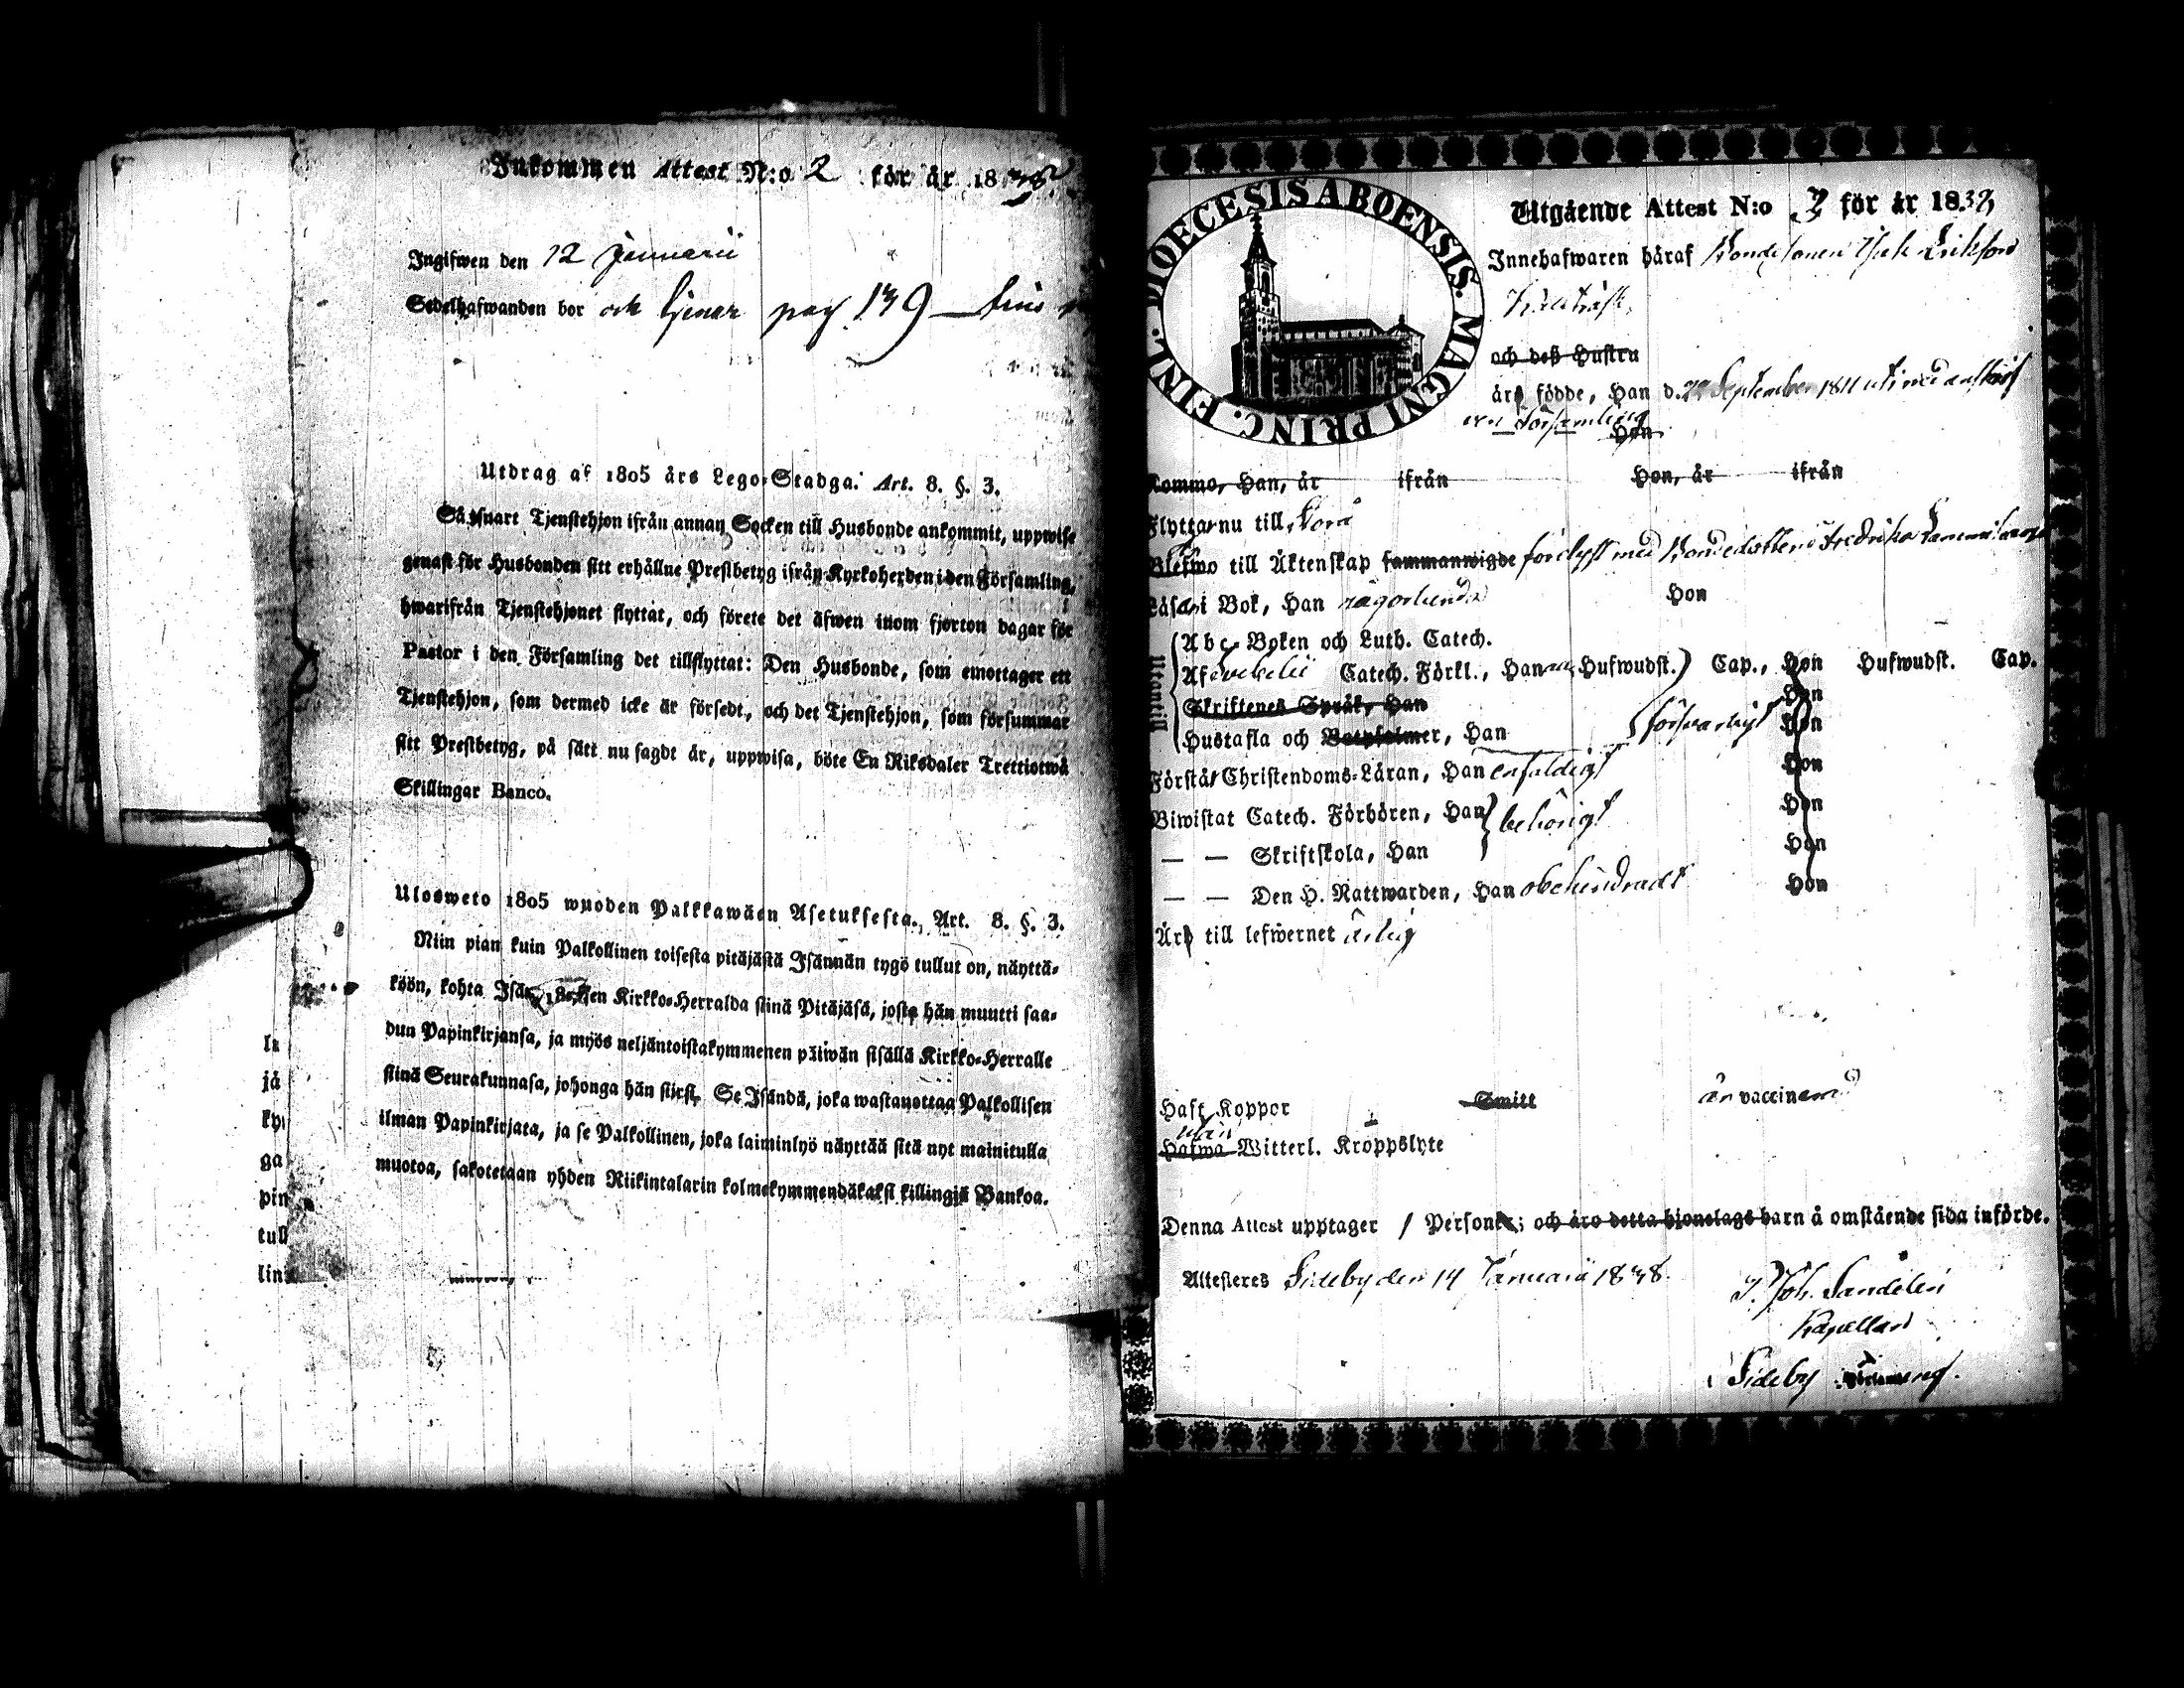 Inkommen Attest N:o 2 för år 1838
Ingifwen den 12 Januarii
Sedelhafwanden bor och tjenar pag 139
Utdrag af 1805 års Lego-Stadga. Art. 8. §. 3.
Så snart Tjenstehjon ifrån annan Socken till Husbonde ankommit, uppwise
genast för Husbonden sitt erhållne Prestbetyg ifrån Kyrkoherden i den Församling,
hwarifrån Tjenstehjonet flyttat, och förete det äfwen inom fjorton dagar för
Pastor i den Församling det tillflyttat: Den Husbonde, som emottager ett
Tjenstehjon, som dermed icke är försedt, och det Tjenstehjon, som försummar
sitt Prestbetyg, på sätt nu sagdt är, uppwisa, böte En Riksdaler Trettiotwå
Skillingar Banco.
Ulosweto 1805 wuoden Palkkawäen Asetuksesta., Art. 8. §. 3.
Niin pian kuin Palkollinen toisesta pitäjästä Isännän tygö tullut on, näyttä-
köön, kohta Kirkko-Herralda siinä Pitäjäsä, josta hän muutti saa-
dun Papinkirjansa, ja myös neljäntoistakymmenen päiwän sisällä Kirkko-Herralle
siinä Seurakunnasa, johonga hän siirsi. Se Isändä, joka wastanottaa Palkollisen
ilman Papinkirjata, ja se Palkollinen, joka laiminlyö näyttää sitä nyt mainitulla
muotoa, sakotetaan yhden Riikintalarin kolmekymmendäkaksi killingiä Bankoa.
la
jä
ky
ga
pin
tull
lin
DIOECESIS ABOENSIS. MAGNI PRINC. FINL.
Utgående Attest N:o 3 för år 1838
Innehafwaren häraf Bondesonen Isak Eriksson
och deß Hustru
äro födde, Han d. 29 September 1811 uti nedanskrif
ven Församling
Hon
Komma, Han, år ifrån Hon, år ifrån
Flytta nu till
Blefwo till Äktenskap sammanwigde förelyst med Bondedottern Fredrika
Läsa i Bok, Han någorlunda Hon
Utantill
Abc-Boken och Luth. Catech.
Af Catech. Förkl., Han Hufwudst. Cap., Hon Hufwudst. Cap.
Skriftenes Språk, Han Hon
Hustafla och Botpsalmer, Han försvarligt Hon
Förstå Christendoms-Läran, Han enfaldigt Hon
Biwistat Catech. Förhören, Han behörigt Hon
— — Skriftskola, Han Hon
— — Den H. Nattwarden, Han obehindradt Hon
Äro till lefwernet ärlig
Haft Koppor Smitt är vaccinerad
utan
Hafwa Witterl. Kroppslyte
Denna Attest upptager 1 Personer; och äro detta hjonelags barn å omstående sida införde.
Attesteres Sideby den 14 Januarii 1838.
Joh. Sandelin
Kapellan
Sideby